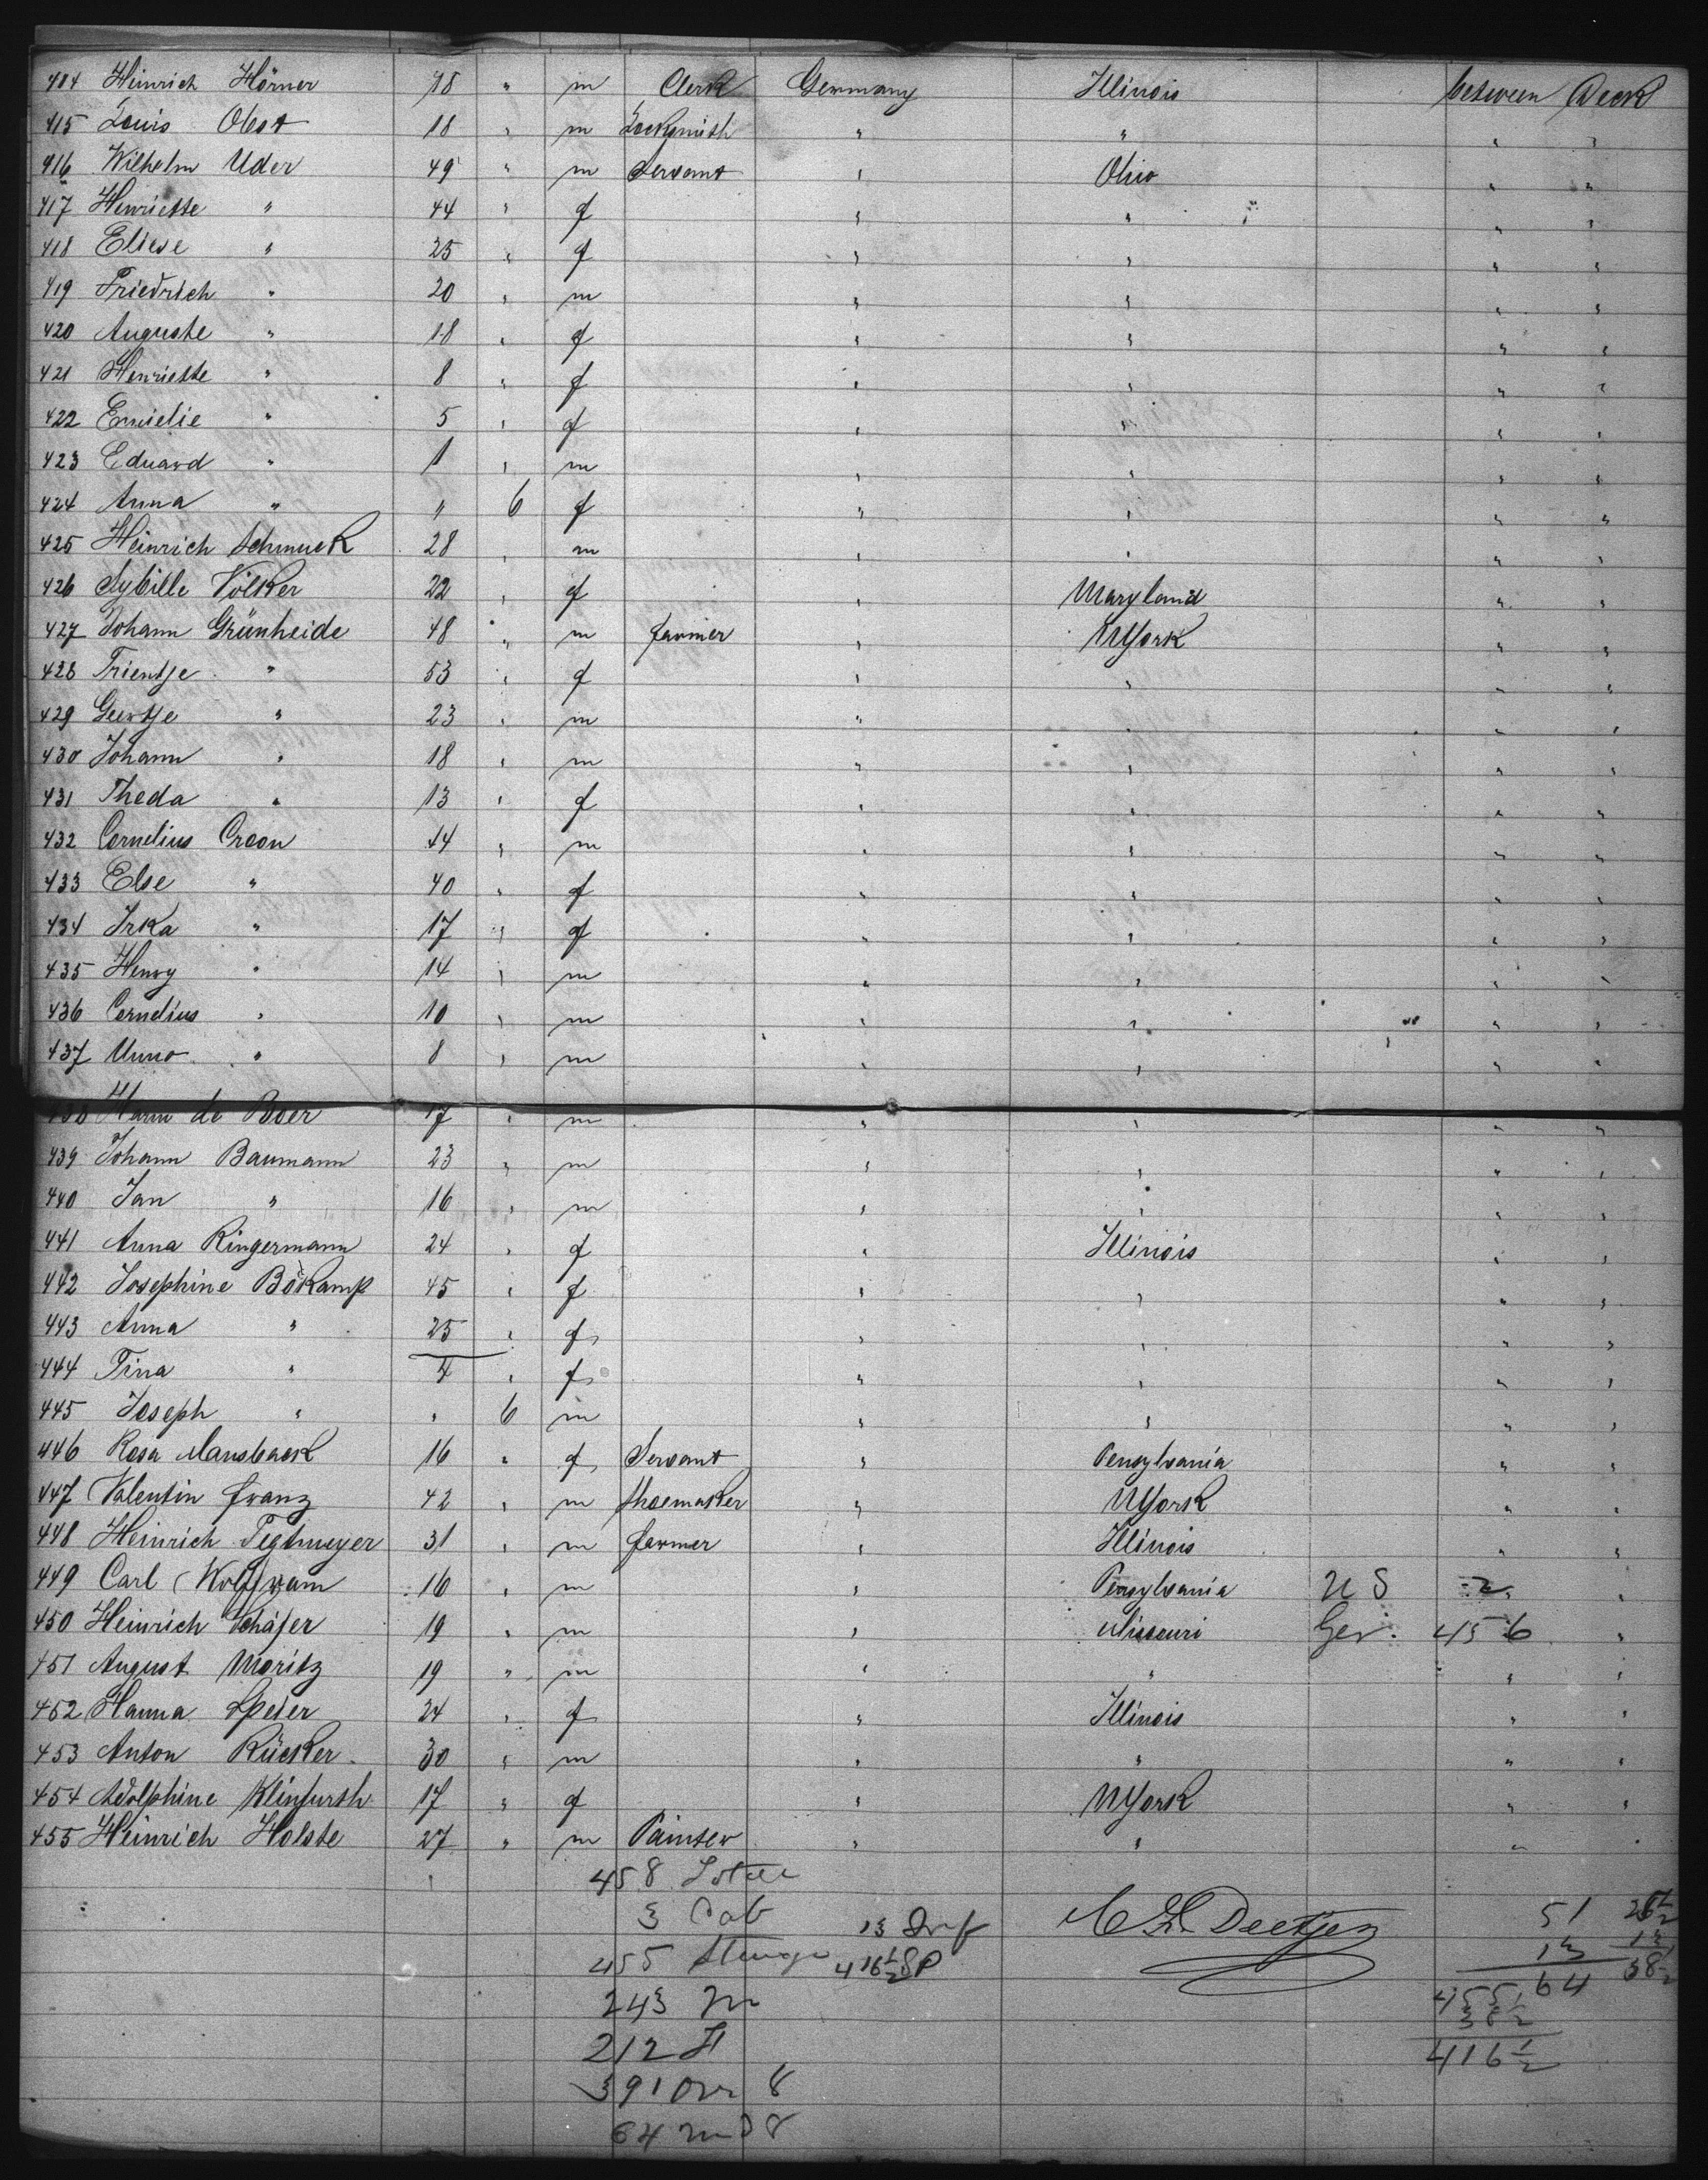 414 Heinrich Hörner 18 " m Clerk Germany Illinois between Deck
415 Louis Obst 18 " m Locksmith " " " "
416 Wilhelm Uder 49 " m Servant " Ohio " "
417 Henriette " 44 " f " " " "
418 Eliese " 25 " f " " " "
419 Friedrich " 20 " m " " " "
420 Auguste " 18 " f " " " "
421 Henriette " 8 " f " " " "
422 Emielie " 5 " f " " " "
423 Eduard " 1 " m " " " "
424 Anna " " 6 f " " " "
425 Heinrich Schmuck 28 " m " " " "
426 Sybille Völker 22 " f " Maryland " "
427 Johann Grünheide 48 " m farmer " NYork " "
428 Trientje " 53 " f " " " "
429 Geertje " 23 " m " " " "
430 Johann " 18 " m " " " "
431 Theda " 13 " f " " " "
432 Cornelius Croon 44 " m " " " "
433 Else " 40 " f " " " "
434 Irka " 17 " f " " " "
435 Henry " 14 " m " " " "
436 Cornelius " 10 " m " " " "
437 Unno " 8 " m " " " "
438 Harm de Boer 17 " m " " " "
439 Johann Baumann 23 " m " " " "
440 Jan " 16 " m " " " "
441 Anna Ringermann 24 " f " Illinois " "
442 Josephine Bökamp 45 " f " " " "
443 Anna " 25 " f " " " "
444 Tina " 4 " f " " " "
445 Joseph " " 6 m " " " "
446 Rosa Mansback 16 " f Servant " Pensylvania " "
447 Valentin Franz 42 " m Shoemaker " NYork " "
448 Heinrich Tegtmeyer 31 " m farmer " Illinois " "
449 Carl Wolfram 16 " m " Pensylvania U S 2 "
450 Heinrich Schäfer 19 " m " Missouri Ger. 456 "
451 August Moritz 19 " m " " " "
452 Hanna Speier 24 " f " Illinois " "
453 Anton Rücker 30 " m " " " "
454 Adolphine Klinfurth 17 " f " NYork " "
455 Heinrich Holste 27 " m Painter " " " "
458 Total
3 Cab 13 Inf C L Deetjen 51 25½
455 Steerage 416½ SP 13 13
64 38½
243 M 455
38½
212 F 416½
391 Ovr 8
64 und 8